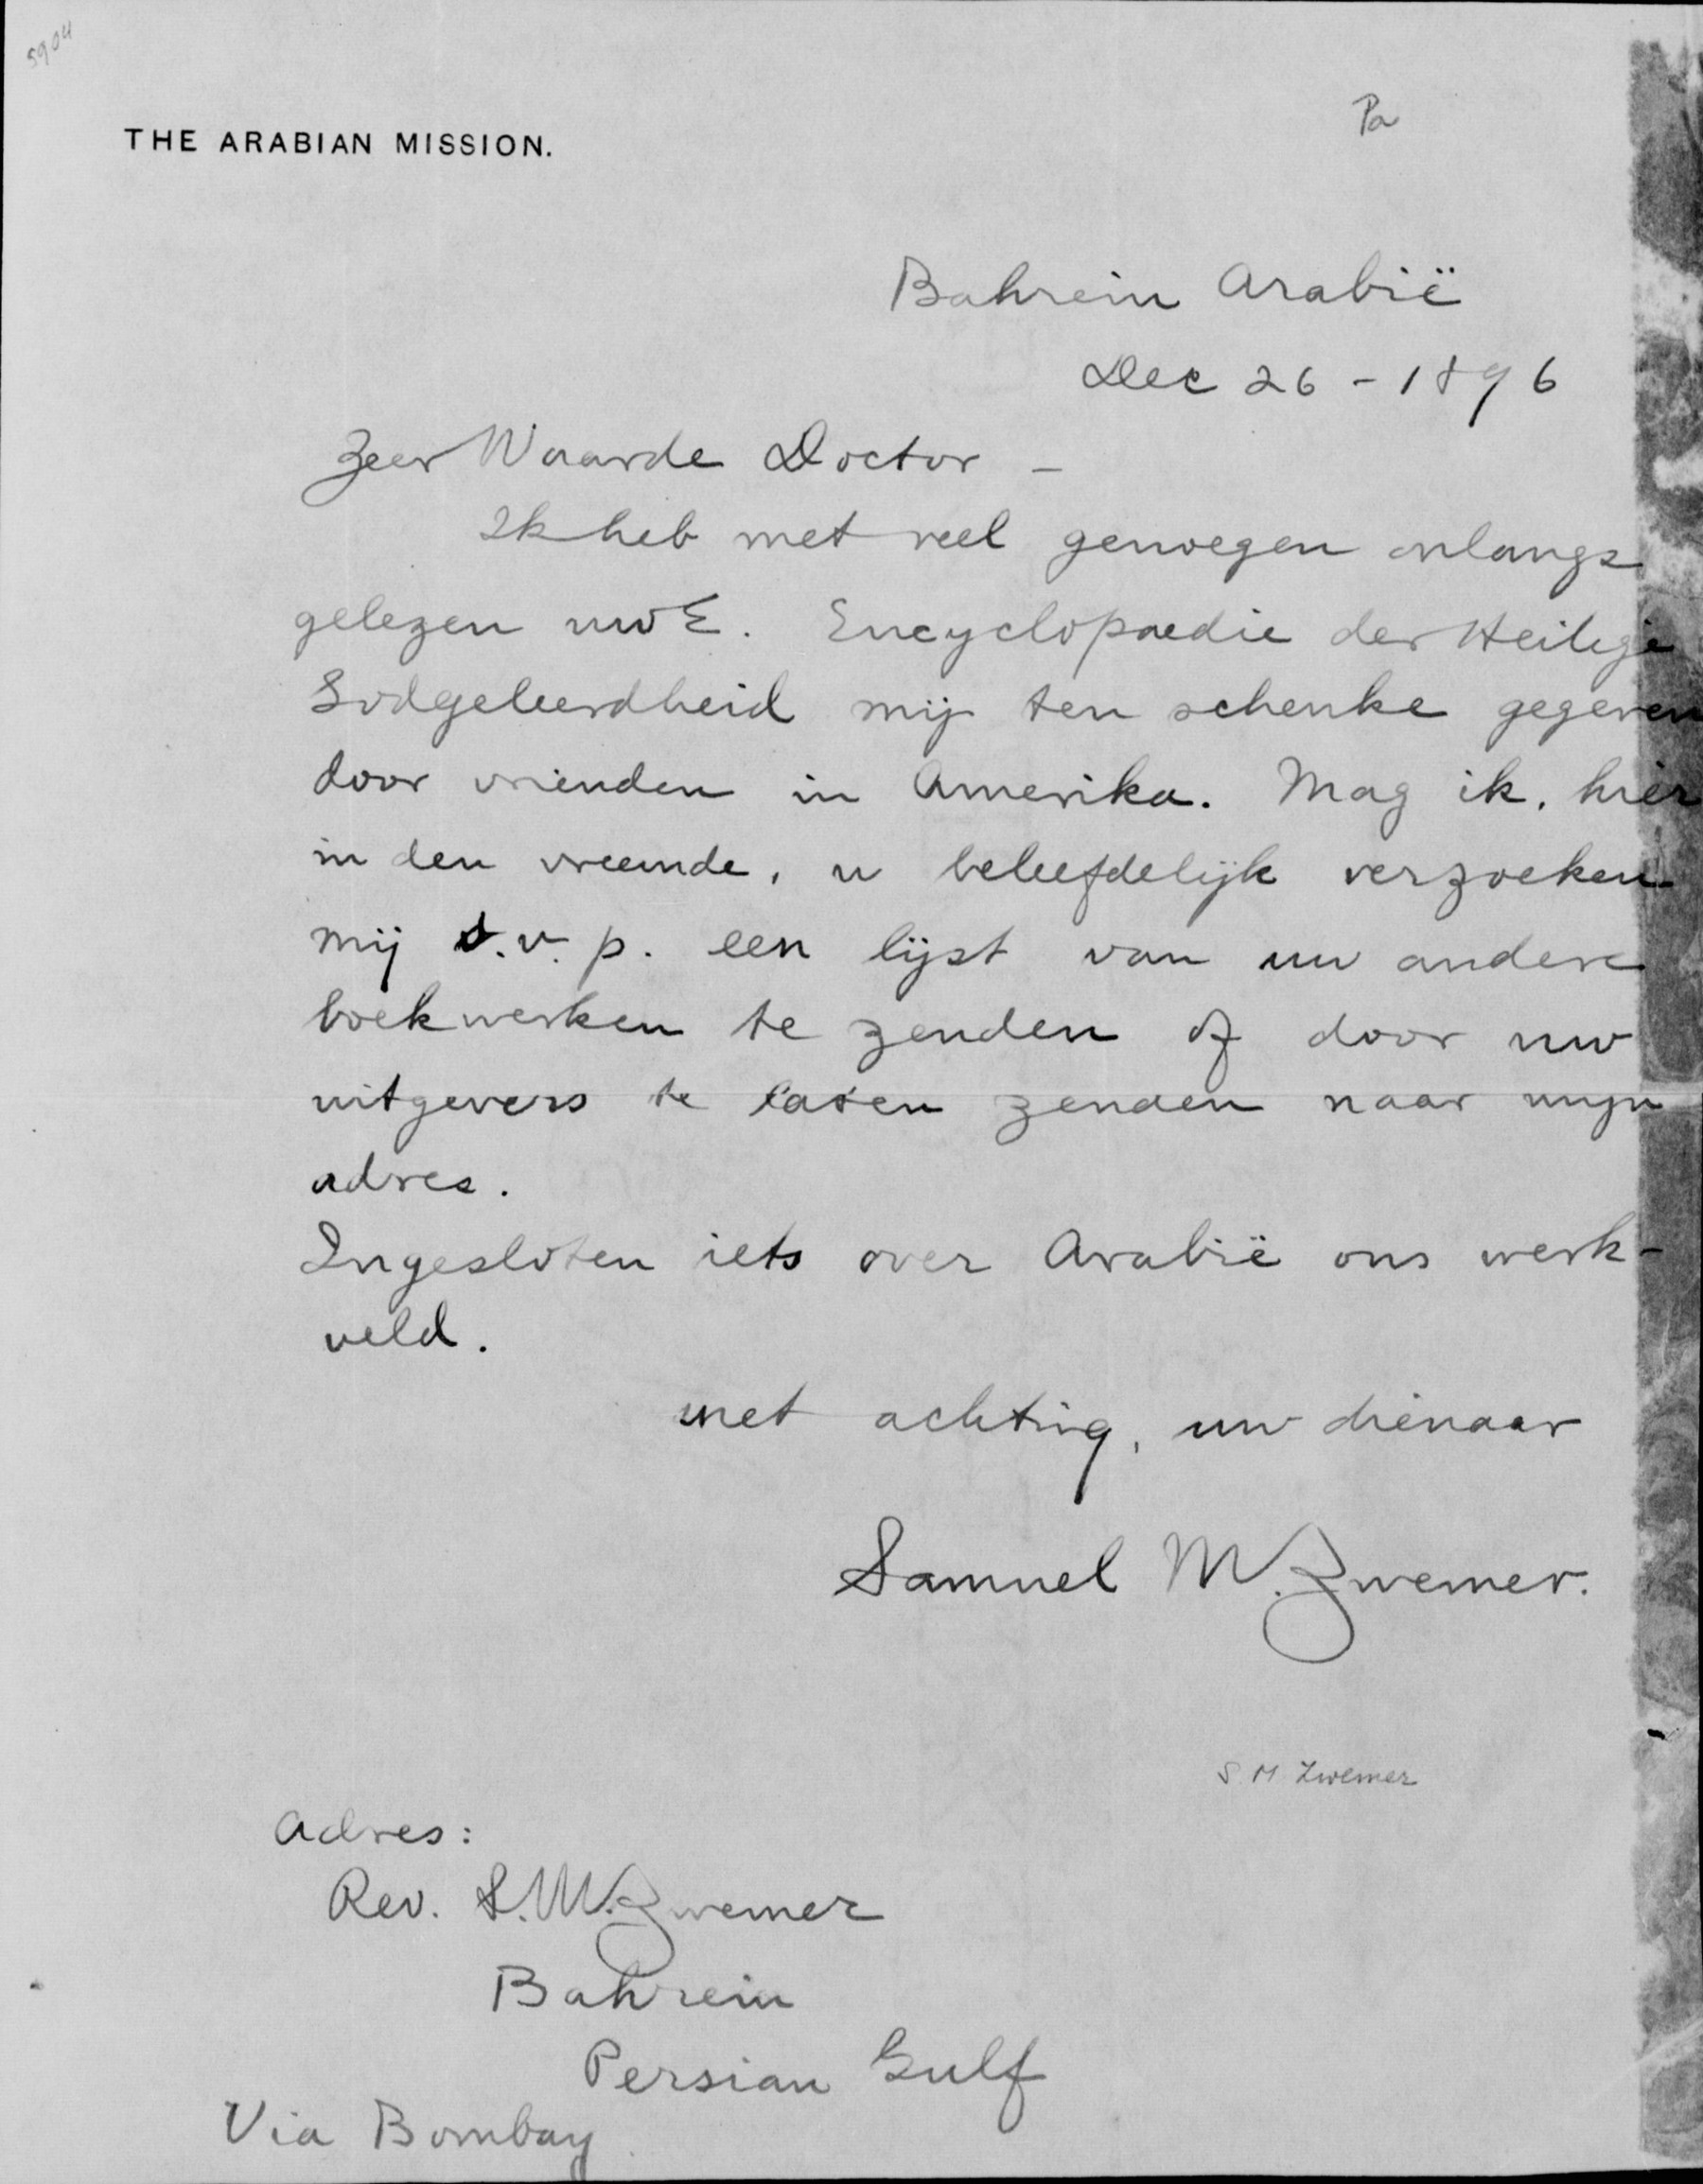 5904
Pa
THE ARABIAN MISSION.
Bahrein Arabië
Dec 26 - 1896
Zeer Waarde Doctor –
Ik heb met veel genoegen onlangs
gelezen uwE. Encyclopaedie der Heilige
Godgeleerdheid mij ten schenke gegeven
door vrienden in Amerika. Mag ik, hier
in den vreemde, u beleefdelijk verzoeken
mij s.v.p. een lijst van uw andere
boekwerken te zenden of door uw
uitgevers te laten zenden naar mijn
adres.
Ingesloten iets over Arabië ons werk-
veld.
met achting, uw dienaar
Samuel M. Zwemer.
S M Zwemer
Adres:
Rev. S. M. Zwemer
Bahrein
Persian Gulf
Via Bombay